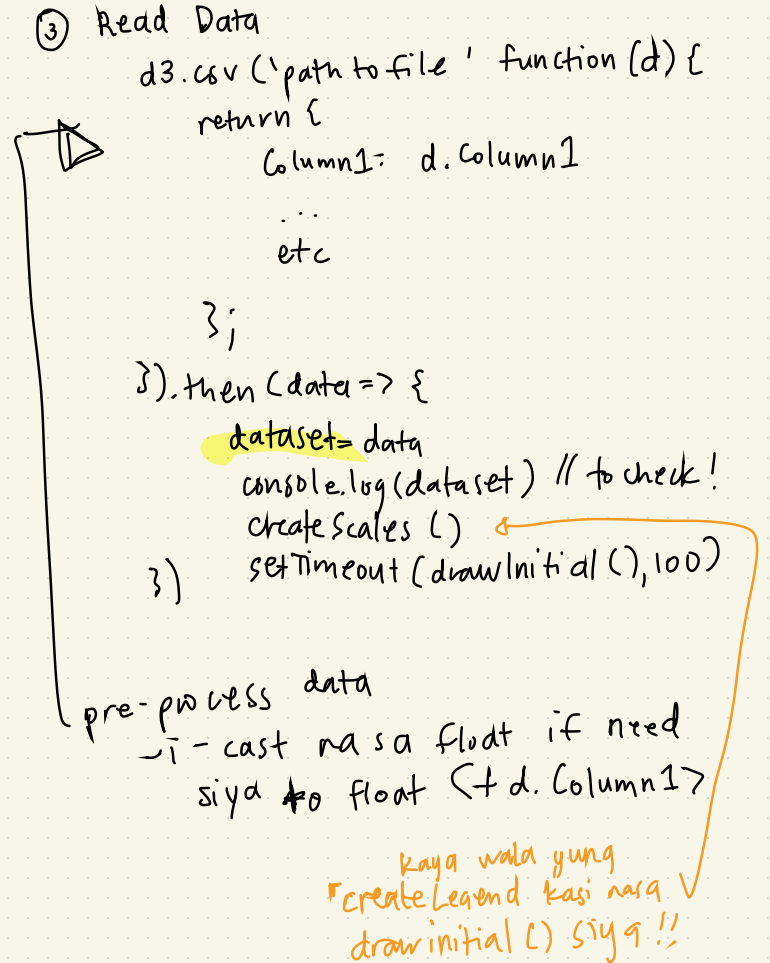 ③ Read Data
d3.csv ('path to file ' function (d) {
return {
Column1: d.Column1
...
etc
};
}).then (data => {
dataset= data
console.log(dataset) // to check!
createScales ()
setTimeout (drawInitial (), 100)
})
pre-process data
-i-cast na sa float if need
siya to float (+ d.Column1>
kaya wala yung
createLegend kasi nasa
drawinitial () siya !!